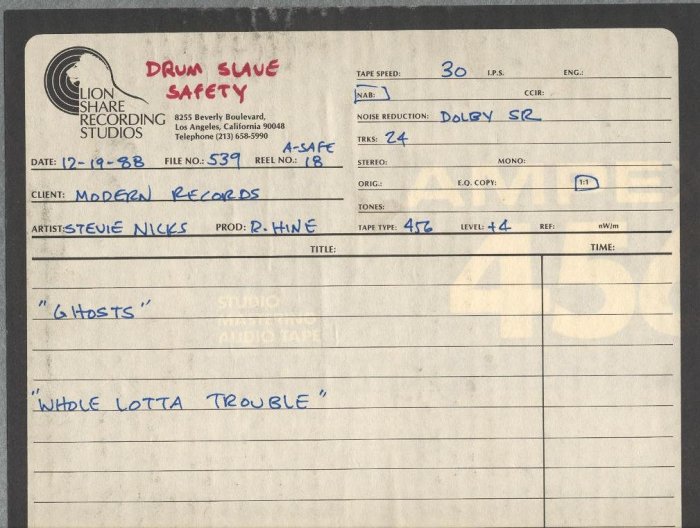 LION
SHARE
RECORDING
STUDIOS
DRUM SLAVE
SAFETY
8255 Beverly Boulevard,
Los Angeles, California 90048
Telephone (213) 658-5990
A-SAFE
DATE: 12-19-88 FILE NO.: 539 REEL NO.: 18
CLIENT: MODERN RECORDS
ARTIST: STEVIE NICKS PROD: R. HINE
TAPE SPEED: 30 I.P.S. ENG.:
NAB: CCIR:
NOISE REDUCTION: DOLBY SR
TRKS: 24
STEREO: MONO:
ORIG.: E.Q. COPY: 1:1
TONES:
TAPE TYPE: 456 LEVEL: +4 REF: nW/m
TITLE: TIME:
"GHOSTS"
"WHOLE LOTTA TROUBLE"
AMPEX
456
STUDIO
MASTERING
AUDIO TAPE